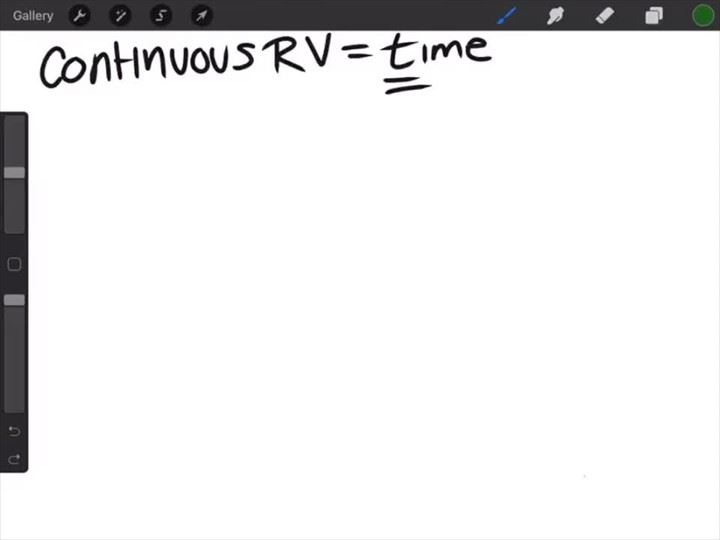 Gallery
Continuous RV = time